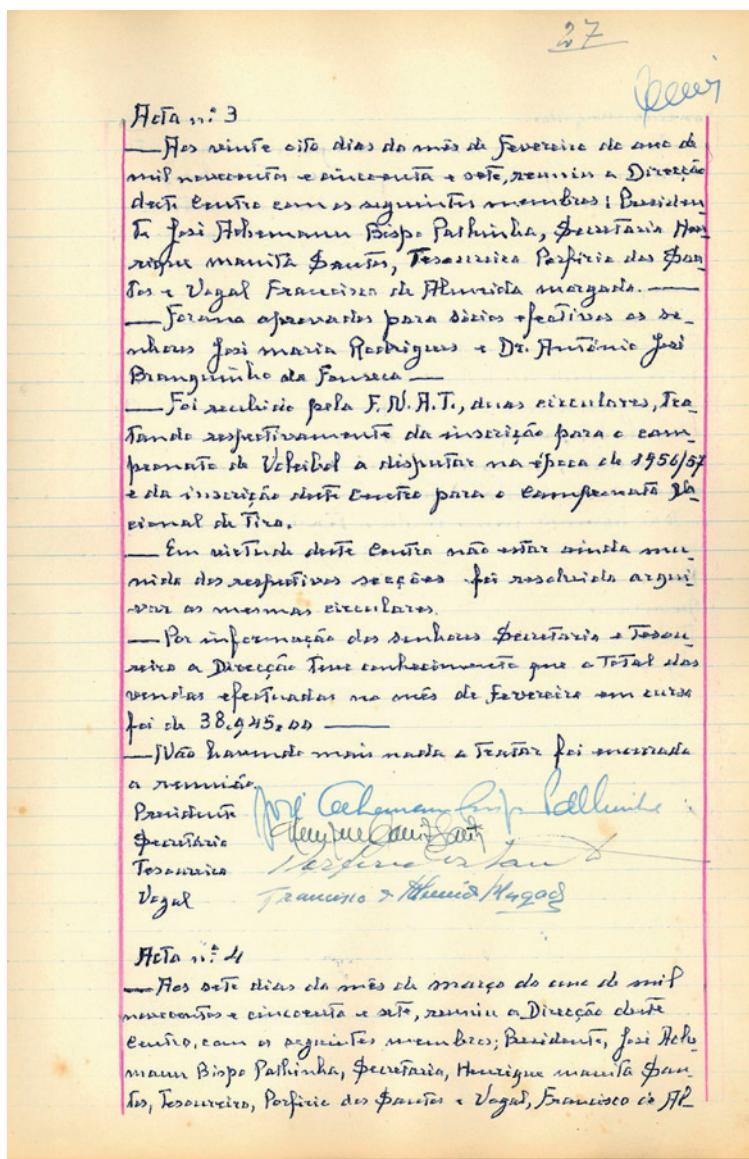 27
Acta n.º 3
— Aos vinte oito dias do mês de Fevereiro do ano de
mil novecentos e cincoenta e sete, reuniu a Direcção
deste Centro com os seguintes membros: Presiden-
te José Achemann Bispo Palhinha, Secretário Hen-
rique Manita Santos, Tesoureiro Porfirio dos San-
tos e Vogal Francisco de Almeida Morgado. —
— Foram aprovados para sócios efectivos os se-
nhores José Maria Rodrigues e Dr. António José
Branquinho da Fonseca —
— Foi recebido pela F.N.A.T., duas circulares, tra-
tando respectivamente da inscrição para o cam-
peonato de Voleibol a disputar na época de 1956/57
e da inscrição deste Centro para o Campeonato Na-
cional de Tiro.
— Em virtude deste Centro não estar ainda mu-
nido das respectivas secções foi resolvido arqui-
var as mesmas circulares.
— Por informação dos senhores Secretário e Tesou-
reiro a Direcção teve conhecimento que o total das
vendas efectuadas no mês de Fevereiro em curso
foi de 38.945.00 —
— Não havendo mais nada a tratar foi encerrada
a reunião.
Presidente José Achemann Bispo Palhinha
Secretário Henrique Manita Santos
Tesoureiro Porfirio dos Santos
Vogal Francisco d'Almeida Morgado
Acta n.º 4
— Aos sete dias do mês de março do ano de mil
novecentos e cincoenta e sete, reuniu a Direcção deste
Centro, com os seguintes membros; Presidente, José Ache-
mann Bispo Palhinha, Secretário, Henrique Manita San-
tos, Tesoureiro, Porfirio dos Santos e Vogal, Francisco de Al-